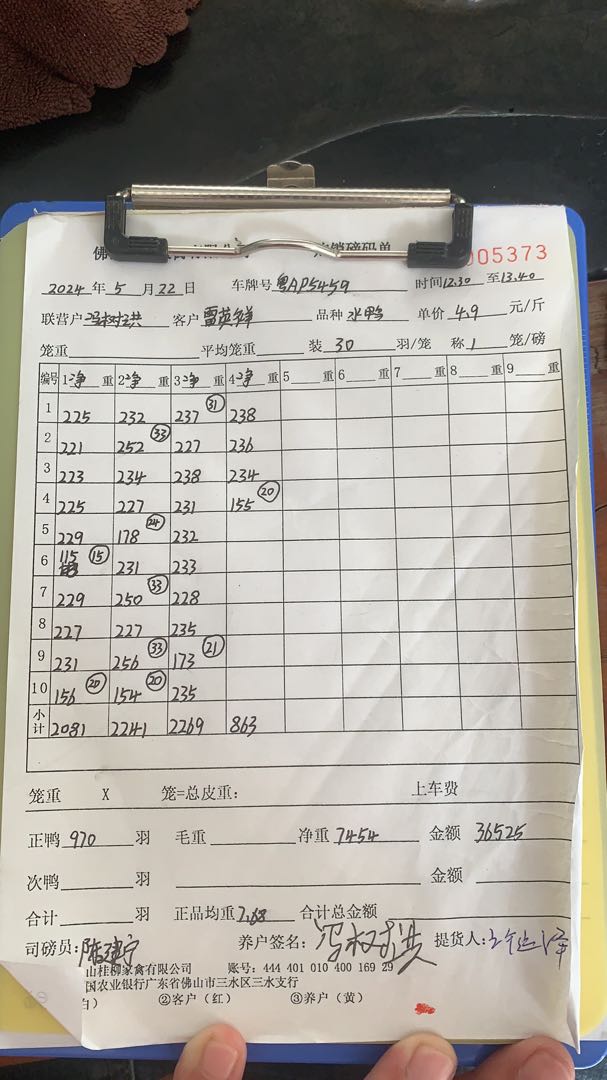 佛 销磅码单 005373
2024 年 5 月 22 日 车牌号 粤AP5459 时间 12.30 至 13.40
联营户 冯树洪 客户 雷英鲜 品种 水鸭 单价 4.9 元/斤
笼重 平均笼重 装 30 羽/笼 称 1 笼/磅
编号 1 净 重 2 净 重 3 净 重 4 净 重 5 重 6 重 7 重 8 重 9 重
1 225 232 237 ㉛ 238
2 221 252 ㉝ 227 236
3 223 234 238 234
4 225 227 231 155 ⑳
5 229 178 ㉔ 232
6 115 ⑮ 231 233
7 229 250 ㉝ 228
8 227 227 235
9 231 256 ㉝ 173 ㉑
10 156 ⑳ 154 ⑳ 235
小计 2081 2241 2269 863
笼重 X 笼=总皮重: 上车费
正鸭 970 羽 毛重 净重 7454 金额 36525
次鸭 羽 金额
合计 羽 正品均重 7.68 合计总金额
司磅员: 陈建宁 养户签名: 提货人:
山桂柳家禽有限公司 账号: 444 401 010 400 169 29
国农业银行广东省佛山市三水区三水支行
白) ②客户(红) ③养户(黄)